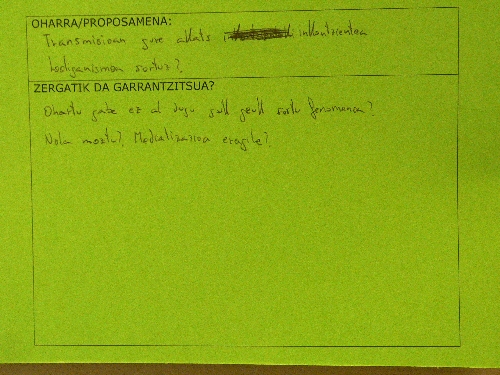 OHARRA/PROPOSAMENA:
Transmisioan gure akats inkontzientea
sortuz?
ZERGATIK DA GARRANTZITSUA?
Ohartu gabe ez al dugu guk geuk sortu fenomenoa?
Nola moztu? Medikalizazioa eragile?